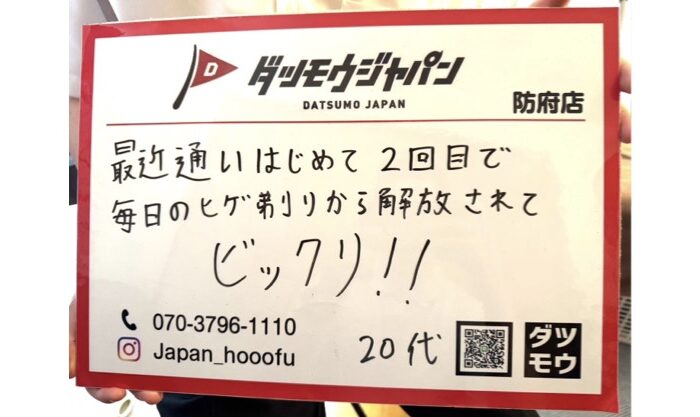 D ダツモウジャパン
DATSUMO JAPAN
防府店
最近通いはじめて 2回目で
毎日のヒゲ剃りから解放されて
ビックリ!!
070-3796-1110
Japan_hooofu
20代
ダツ
モウ